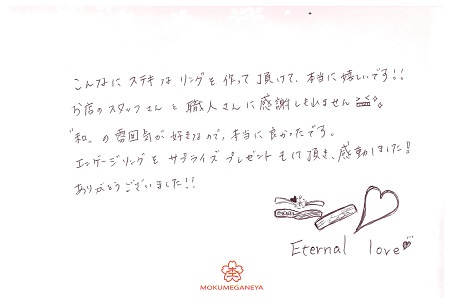 こんなにステキなリングを作って頂けて、本当に嬉しいです!!
お店のスタッフさんと職人さんに感謝しきれません
"和"の雰囲気が好きなので、本当に良かったです。
エンゲージリングをサプライズプレゼントもして頂き、感動しました!!
ありがとうございました!!
Eternal love
MOKUMEGANEYA